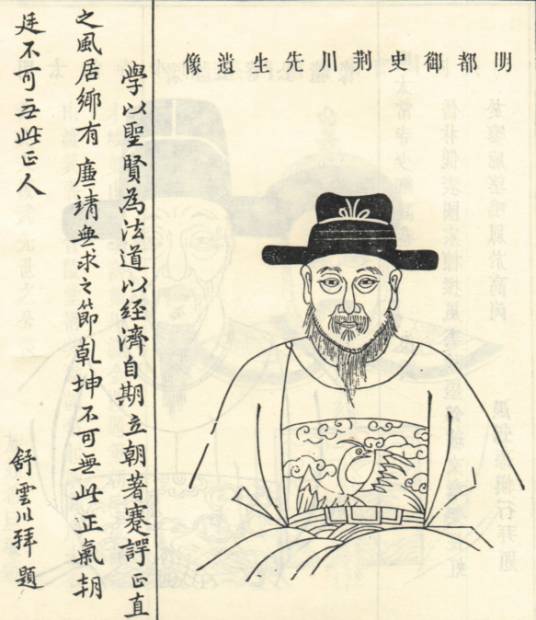 明都御史荆川先生遺像
學以聖賢為法道以经濟自期立朝著蹇諤正直
之風居鄉有廉靖無求之節乾坤不可無此正氣朝
廷不可无此正人
舒雲川拜題